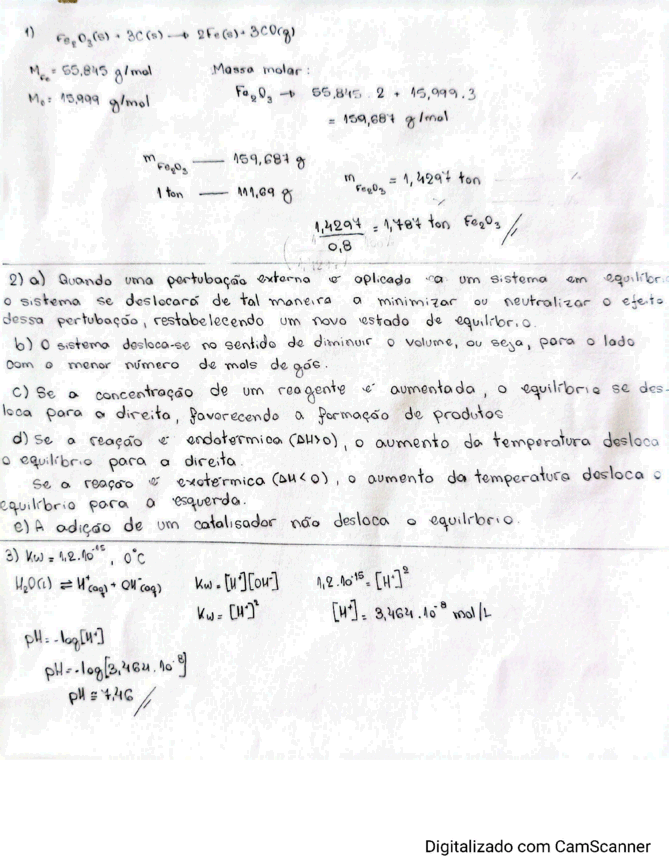 1) Fe₂O₃(s) + 3C(s) → 2Fe(s) + 3CO(g)
M_Fe = 55,845 g/mol Massa molar:
M_O = 15,999 g/mol Fe₂O₃ → 55,845 . 2 + 15,999 . 3
= 159,687 g/mol
m_Fe₂O₃ —— 159,687 g
1 ton —— 111,69 g m_Fe₂O₃ = 1,4297 ton
1,4297 / 0,8 = 1,787 ton Fe₂O₃ //
2) a) Quando uma pertubação externa é aplicada a um sistema em equilíbrio
o sistema se deslocará de tal maneira a minimizar ou neutralizar o efeito
dessa pertubação, restabelecendo um novo estado de equilíbrio.
b) O sistema desloca-se no sentido de diminuir o volume, ou seja, para o lado
com o menor número de mols de gás.
c) Se a concentração de um reagente é aumentada, o equilíbrio se des-
loca para a direita, favorecendo a formação de produtos
d) Se a reação é endotérmica (ΔH>0), o aumento da temperatura desloca
o equilíbrio para a direita.
Se a reação é exotérmica (ΔH<0), o aumento da temperatura desloca o
equilíbrio para a esquerda.
e) A adição de um catalisador não desloca o equilíbrio.
3) Kw = 1,2.10⁻¹⁵, 0°C
H₂O(l) ⇌ H⁺(aq) + OH⁻(aq) Kw = [H⁺][OH⁻] 1,2.10⁻¹⁵ = [H⁺]²
Kw = [H⁺]² [H⁺] = 3,464.10⁻⁸ mol/L
pH = -log[H⁺]
pH = -log[3,464.10⁻⁸]
pH ≅ 7,46 //
Digitalizado com CamScanner